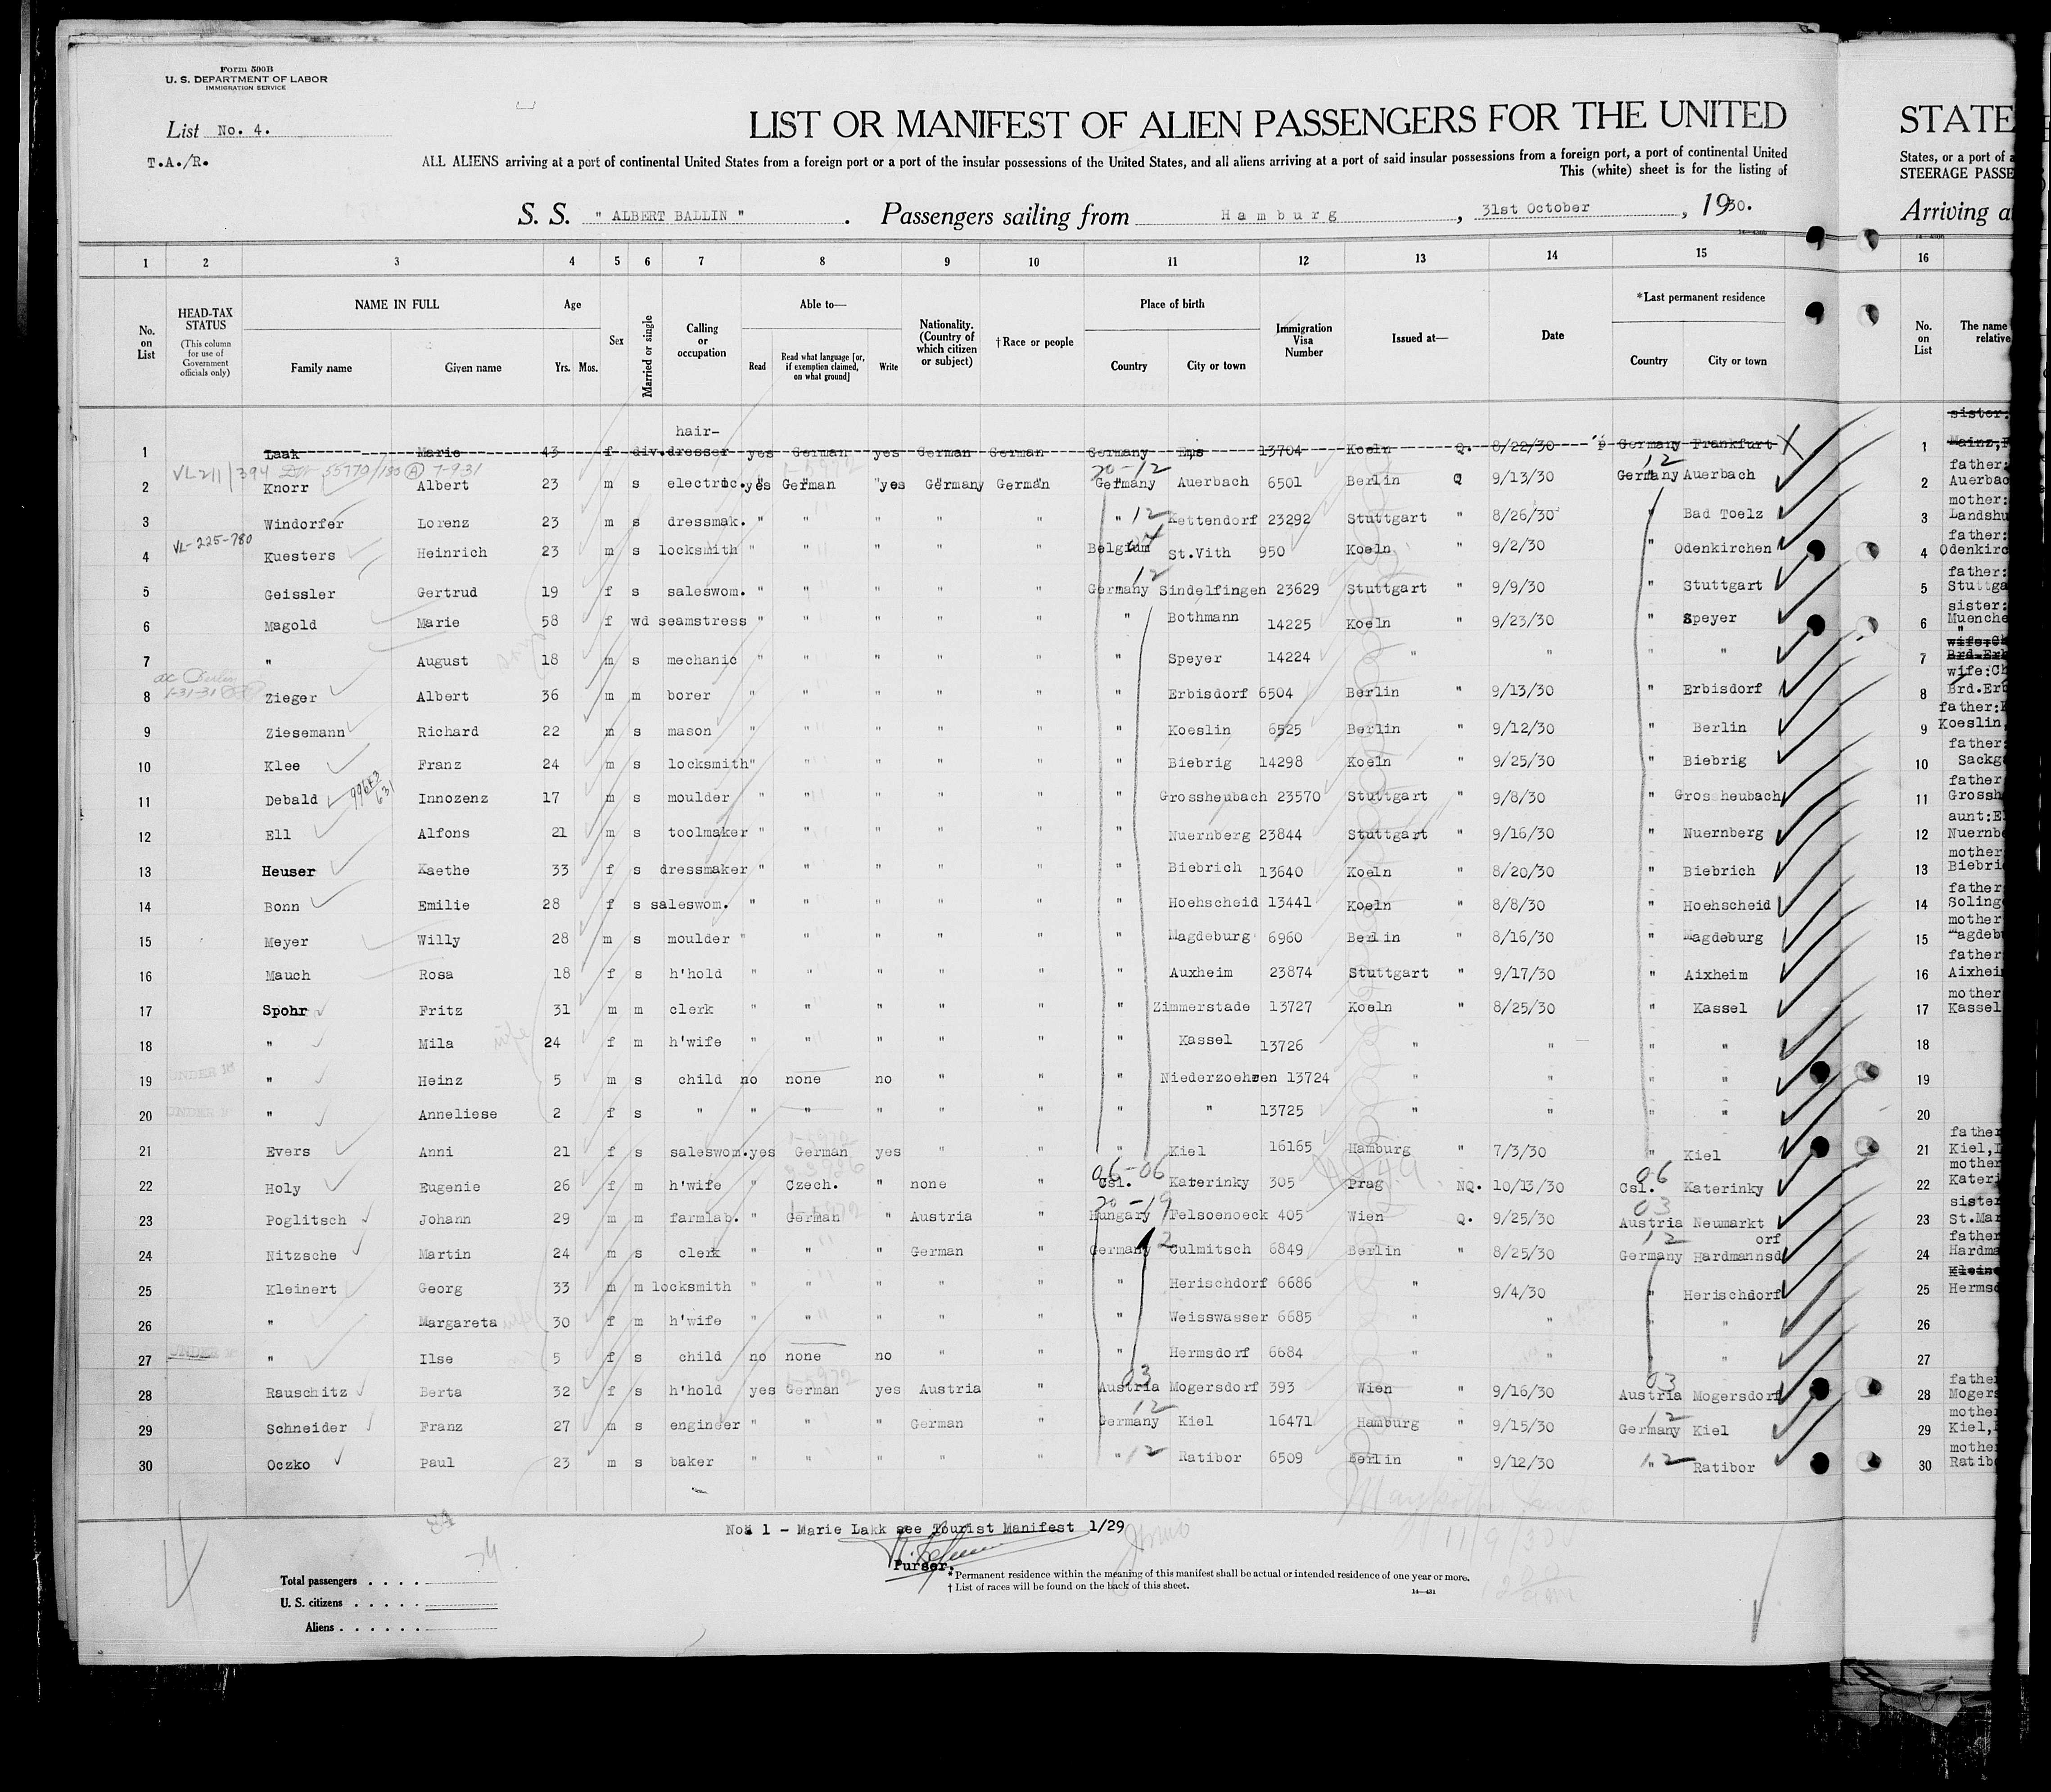 Form 500B
U. S. DEPARTMENT OF LABOR
IMMIGRATION SERVICE
List No. 4.
T.A./R.
LIST OR MANIFEST OF ALIEN PASSENGERS FOR THE UNITED
STATE
ALL ALIENS arriving at a port of continental United States from a foreign port or a port of the insular possessions of the United States, and all aliens arriving at a port of said insular possessions from a foreign port, a port of continental United
States, or a port of a
This (white) sheet is for the listing of
STEERAGE PASSE
S. S. " ALBERT BALLIN " . Passengers sailing from Hamburg , 31st October , 1930.
Arriving a
1 2 3 4 5 6 7 8 9 10 11 12 13 14 15 16
No. on List
HEAD-TAX STATUS
(This column for use of Government officials only)
NAME IN FULL
Family name Given name
Age
Yrs. Mos.
Sex
Married or single
Calling or occupation
Able to—
Read
Read what language [or, if exemption claimed, on what ground]
Write
Nationality. (Country of which citizen or subject)
†Race or people
Place of birth
Country City or town
Immigration Visa Number
Issued at—
Date
*Last permanent residence
Country City or town
No. on List
The name relative
hair- sister:
1 Laak Marie 43 f div. dresser yes German yes German German Germany Ems 13704 Koeln Q. 8/22/30 Germany Frankfurt X 1 Mainz,
VL 211/394 55770/180 (A) 7-931 1-5972 20-12 12 father:
2 Knorr Albert 23 m s electric. yes German yes Germany German Germany Auerbach 6501 Berlin Q 9/13/30 Germany Auerbach 2 Auerbac
mother:
3 Windorfer Lorenz 23 m s dressmak. " " " " " " 12 Kettendorf 23292 Stuttgart " 8/26/30 " Bad Toelz 3 Landshu
VL-225-780 father:
4 Kuesters Heinrich 23 m s locksmith " " " " " Belgium St.Vith 950 Koeln " 9/2/30 " Odenkirchen 4 Odenkirc
12 father:
5 Geissler Gertrud 19 f s saleswom. " " " " " Germany Sindelfingen 23629 Stuttgart " 9/9/30 " Stuttgart 5 Stuttga
sister:
6 Magold Marie 58 f wd seamstress " " " " " " Bothmann 14225 Koeln " 9/23/30 " Speyer 6 Muenche
"
wife:Ch
7 " August 18 m s mechanic " " " " " " Speyer 14224 " " " " 7 Brd.Erb
ac Berlin wife:Ch
1-31-31
8 Zieger Albert 36 m m borer " " " " " " Erbisdorf 6504 Berlin " 9/13/30 " Erbisdorf 8 Brd.Erb
father:
9 Ziesemann Richard 22 m s mason " " " " " " Koeslin 6525 Berlin " 9/12/30 " Berlin 9 Koeslin,
father:
10 Klee Franz 24 m s locksmith " " " " " " Biebrig 14298 Koeln " 9/25/30 " Biebrig 10 Sackg
father
11 Debald Innozenz 17 m s moulder " " " " " " Grossheubach 23570 Stuttgart " 9/8/30 " Grossheubach 11 Grossh
aunt:E
12 Ell Alfons 21 m s toolmaker " " " " " " Nuernberg 23844 Stuttgart " 9/16/30 " Nuernberg 12 Nuernbe
mother
13 Heuser Kaethe 33 f s dressmaker " " " " " " Biebrich 13640 Koeln " 8/20/30 " Biebrich 13 Biebri
father
14 Bonn Emilie 28 f s saleswom. " " " " " " Hoehscheid 13441 Koeln " 8/8/30 " Hoehscheid 14 Soling
mother
15 Meyer Willy 28 m s moulder " " " " " " Magdeburg 6960 Berlin " 8/16/30 " Magdeburg 15 Magdeb
father
16 Mauch Rosa 18 f s h'hold " " " " " " Auxheim 23874 Stuttgart " 9/17/30 " Aixheim 16 Aixhei
mother
17 Spohr Fritz 31 m m clerk " " " " " " Zimmerstade 13727 Koeln " 8/25/30 " Kassel 17 Kassel
18 " Mila 24 f m h'wife " " " " " " Kassel 13726 " " " " 18
UNDER 16
19 " Heinz 5 m s child no none no " " " Niederzoehren 13724 " " " " 19
UNDER 16
20 " Anneliese 2 f s " " " " " " " " 13725 " " " " 20
1-5972 father
21 Evers Anni 21 f s saleswom. yes German yes " " " Kiel 16165 Hamburg " 7/3/30 " Kiel 21 Kiel,
06-06 06 mother
22 Holy Eugenie 26 f m h'wife " Czech. " none " Csl. Katerinky 305 Prag NQ. 10/13/30 Csl. Katerinky 22 Kateri
1-5972 20-19 03 sister
23 Poglitsch Johann 29 m m farmlab. " German " Austria " Hungary Felsoenoeck 405 Wien Q. 9/25/30 Austria Neumarkt 23 St.Mar
12 12 orf father
24 Nitzsche Martin 24 m s clerk " " " German " Germany Culmitsch 6849 Berlin " 8/25/30 Germany Hardmannsd 24 Hardma
Klein
25 Kleinert Georg 33 m m locksmith " " " " " " Herischdorf 6686 " 9/4/30 " Herischdorf 25 Hermsd
26 " Margareta 30 f m h'wife " " " " " " Weisswasser 6685 " " " " 26
UNDER 16
27 " Ilse 5 f s child no none no " " " Hermsdorf 6684 " " " " 27
1-5972 03 03 father
28 Rauschitz Berta 32 f s h'hold yes German yes Austria " Austria Mogersdorf 393 Wien " 9/16/30 Austria Mogersdorf 28 Mogers
12 12 mother
29 Schneider Franz 27 m s engineer " " " German " Germany Kiel 16471 Hamburg " 9/15/30 Germany Kiel 29 Kiel,
mother
30 Oczko Paul 23 m s baker " " " " " " 12 Ratibor 6509 Berlin " 9/12/30 " 12 Ratibor 30 Ratibo
No. 1 - Marie Lakk see Tourist Manifest 1/29
11/9/30
Purser.
Total passengers . . . .
U. S. citizens . . . . .
Aliens . . . . . .
* Permanent residence within the meaning of this manifest shall be actual or intended residence of one year or more.
† List of races will be found on the back of this sheet.
14—431